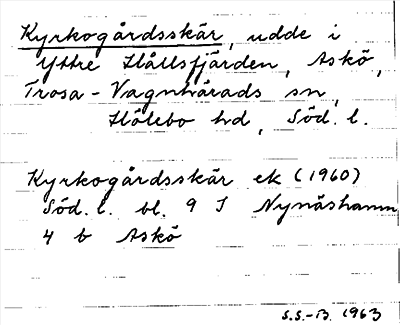 Kyrkogårdsskär, udde i
Yttre Hållsfjärden, Askö,
Trosa-Vagnhärads sn,
Hölebo hd, Söd. l.
Kyrkogårdsskär ek (1960)
Söd. l. bl. 9 I Nynäshamn
4 b Askö
S.S.-B. 1963